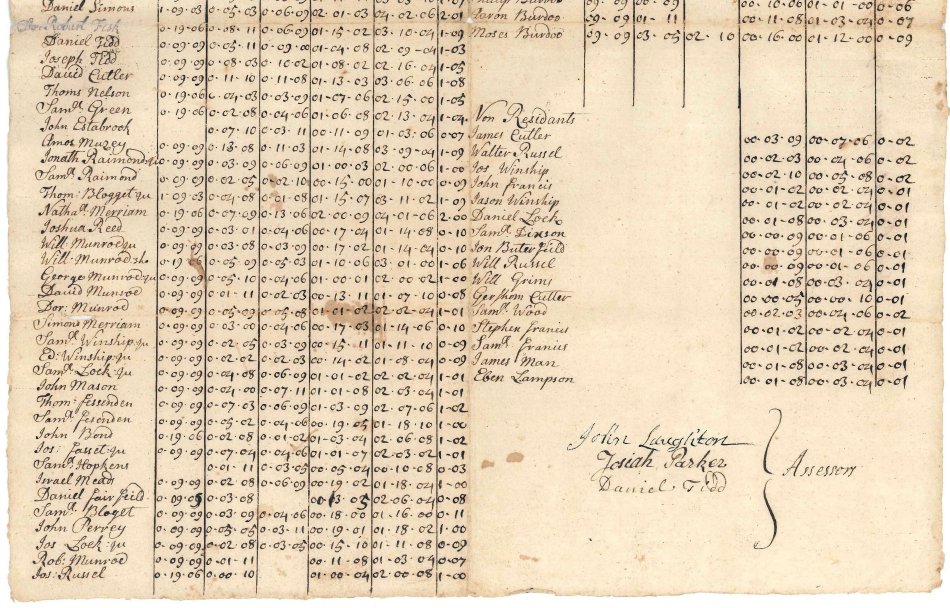 Daniel Simons 1·09·03 0·05·03 0·06·09 02·01·03 04·02·06 2·01
Dr. Robert Fisk 0·19·06 0·08·11 0·06·09 01·15·02 03·10·04 1·09
Daniel Tedd 0·09·09 0·05·11 0·09·00 01·04·08 02·09·04 1·03
Joseph Tidd 0·09·09 0·08·03 0·10·02 01·08·02 02·16·04 1·05
David Cutler 0·09·09 0·11·10 0·11·08 01·13·03 03·06·06 1·08
Thoms Nelson 0·19·06 0·04·03 0·03·09 01·07·06 02·15·00 1·05
Saml Green 0·19·06 0·02·08 0·04·06 01·06·08 02·13·04 1·04
John Estabrook 0·07·10 0·03·11 00·11·09 01·03·06 0·07
Amos Muzey 0·09·09 0·13·08 0·11·03 01·14·08 03·09·04 1·09
Jonath Raimond ju 0·09·09 0·03·09 0·06·09 01·00·03 02·00·06 1·00
Saml Raimond 0·09·09 0·02·05 0·02·10 00·15·00 01·10·00 0·09
Thom: Blogget ju 1·09·03 0·04·08 0·01·08 01·15·07 03·11·02 1·09
Nathal Merriam 0·19·06 0·07·09 0·13·06 02·00·09 04·01·06 2·00
Joshua Reed 0·09·09 0·03·01 0·04·06 00·17·04 01·14·08 0·10
Will: Munrod ju 0·09·09 0·03·08 0·03·09 00·17·02 01·14·04 0·10
Will: Munrod 0·19·06 0·05·09 0·05·03 01·10·06 03·01·00 1·06
George Munrod ju 0·09·09 0·05·10 0·04·06 01·00·01 02·00·02 1·00
David Munroe 0·09·09 0·01·11 0·02·03 00·13·11 01·07·10 0·08
Dor: Munrod 0·09·09 0·05·09 0·05·08 01·01·02 02·02·04 1·01
Simons Merriam 0·09·09 0·03·00 0·04·06 00·17·03 01·14·06 0·10
Saml Winship ju 0·09·09 0·02·05 0·03·09 00·15·11 01·11·10 0·09
Ed: Winship ju 0·09·09 0·02·02 0·02·03 00·14·02 01·08·04 0·09
Saml Lock ju 0·09·09 0·04·08 0·06·09 01·01·02 02·02·04 1·01
John Mason 0·09·09 0·04·00 0·07·11 01·01·08 02·03·04 1·01
Thom: Fessenden 0·09·09 0·07·03 0·06·09 01·03·09 02·07·06 1·02
Saml Fesenden 0·09·09 0·05·02 0·04·06 00·19·05 01·18·10 1·00
John Bond 0·19·06 0·02·08 0·01·02 01·03·04 02·06·08 1·02
Jos: Fasset ju 0·09·09 0·07·06 0·04·06 01·01·09 02·03·06 1·01
Saml Hopkens 0·01·11 0·03·05 00·05·04 00·10·08 0·03
Israel Mead 0·09·09 0·02·08 0·06·09 00·19·02 01·18·04 1·00
Daniel fairfeild 0·09·05 0·03·08 00·13·05 02·06·04 0·08
Saml Bloget 0·09·09 0·03·09 0·04·06 00·18·00 01·16·00 0·11
John Perrey 0·09·09 0·05·05 0·03·11 00·19·01 01·18·02 1·00
Jos Lock ju 0·09·09 0·02·08 0·03·05 00·15·10 01·11·08 0·09
Rob: Munrod 0·09·09 0·01·11 00·11·08 01·03·04 0·07
Jos: Russel 0·19·06 0·00·10 01·00·04 02·00·08 1·00
Aaron Burdoo 09·09 01·11 00·11·08 01·03·04 0·07
Moses Burdoo 09·09 03·05 02·10 00·16·00 01·12·00 0·09
Non Residants
James Cutler 00·03·09 00·07·06 0·02
Walter Russel 00·02·03 00·04·06 0·02
Jos Winship 00·02·10 00·05·08 0·02
John Francis 00·01·02 00·02·04 0·01
Jason Winship 00·01·02 00·02·04 0·01
Daniel Lock 00·01·08 00·03·04 0·01
Saml Dixson 00·00·09 00·01·06 0·01
Jon Buterfield 00·00·09 00·01·06 0·01
Will Russel 00·00·09 00·01·06 0·01
Will Grims 00·01·08 00·03·04 0·01
Gershom Cutler 00·00·05 00·00·10 0·01
Saml Wood 00·02·03 00·04·06 0·02
Stephen francis 00·01·02 00·02·04 0·01
Saml Francis 00·01·02 00·02·04 0·01
James Man 00·00·08 00·01·04 0·01
Eben Lampson 00·01·08 00·03·04 0·01
John Laughton
Josiah Parker
Daniel Tidd
Assessors